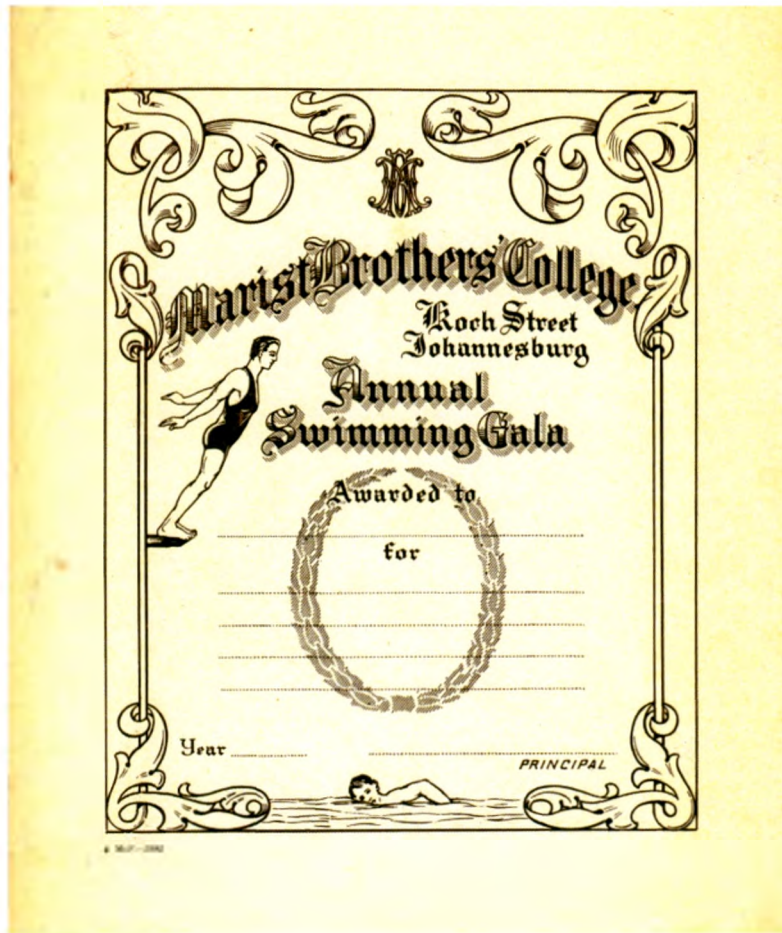 Marist Brothers' College
Koch Street
Johannesburg
Annual
Swimming Gala
Awarded to
for
Year
PRINCIPAL